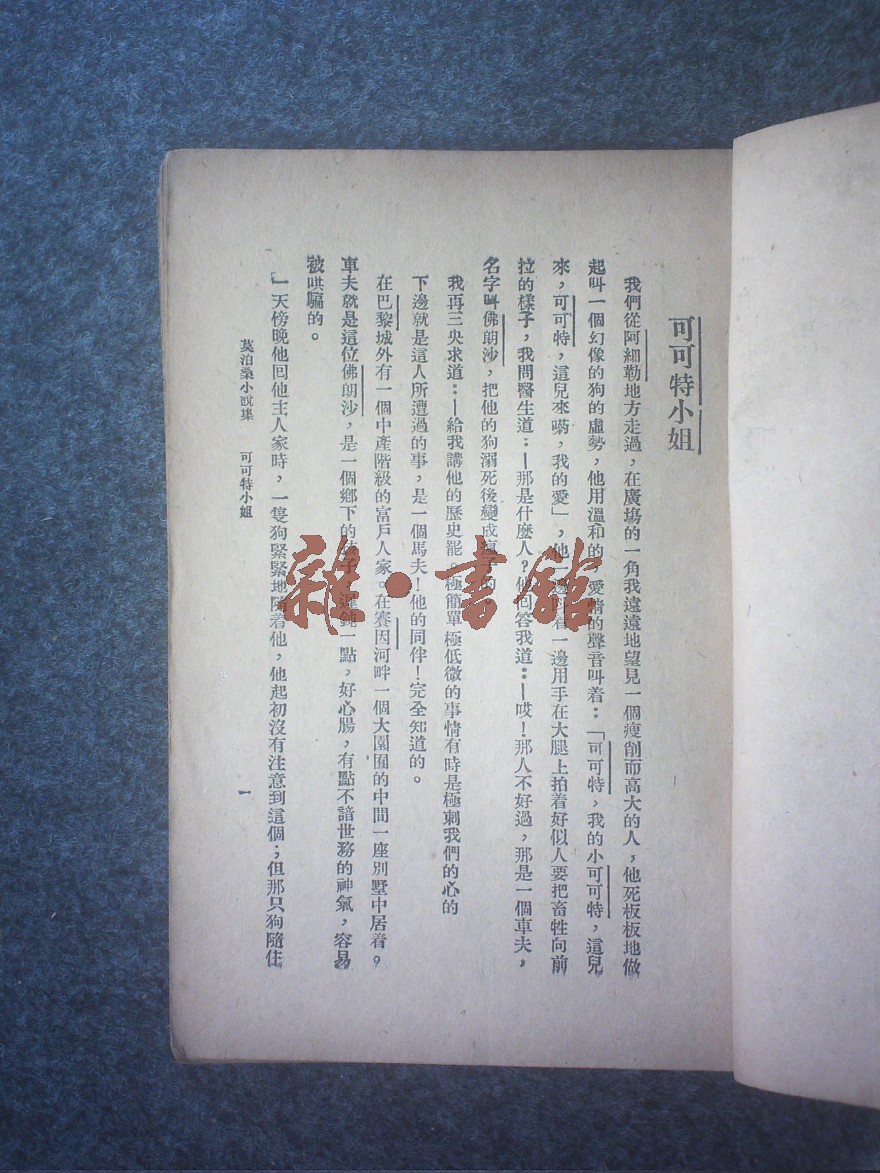 可可特小姐
我們從阿細勒地方走過，在廣塲的一角我遠遠地望見一個瘦削而高大的人，他死板板地做
起叫一個幻像的狗的虛勢，他用溫和的，愛情的聲音叫着：「可可特，我的小可可特，這兒
來，可可特，這兒來喲，我的愛」，他一邊叫着一邊用手在大腿上拍着好似人要把畜牲向前
拉的樣子，我問醫生道：—那是什麼人？他回答我道：—哎！那人不好過，那是一個車夫，
名字叫佛朗沙，把他的狗溺死後變成瘋子的。
我再三央求道：—給我講他的歷史罷。極簡單極低微的事情有時是極刺我們的心的
下邊就是這人所遭過的事，是一個馬夫！他的同伴！完全知道的。
在巴黎城外有一個中產階級的富戶人家。在賽因河畔一個大園囿的中間一座別墅中居着。
車夫就是這位佛朗沙，是一個鄉下的孩子，遲鈍一點，好心腸，有點不諳世務的神氣，容易
被哄騙的。
一天傍晚他回他主人家時，一隻狗緊緊地隨着他，他起初沒有注意到這個；但那只狗隨住
莫泊桑小說集 可可特小姐
一
雜·書館